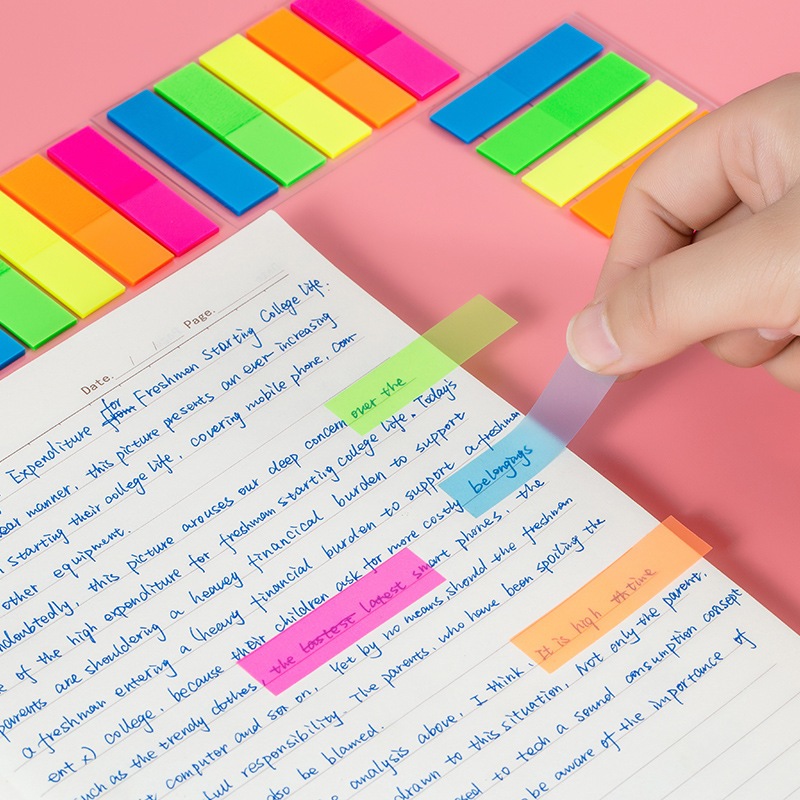 Date. / / Page.
Expenditure for Freshmen Starting College life.
ear manner, this picture presents an ever increasing
starting their college life, covering mobile phone, com-
other equipment.
ndoubtedly, this picture arouses our deep concern over the
e of the high expenditure for freshmen starting college life. Today's
parents are shouldering a heavy financical burden to support
a freshman entering a (heavy financial burden to support a freshman
ent x) college, because their children ask for more costly belongings
such as the trendy clothes, the lastest latest smart phones, the
t computer and son on, Yet by no means should the freshman
full responsibility. The parents, who have been spoiling the
lso be blamed.
e analysis above, I think, It is high thtime
drawn to this situation, Not only the parent,
sed to tech a sound consumption consept
be aware of the importance of